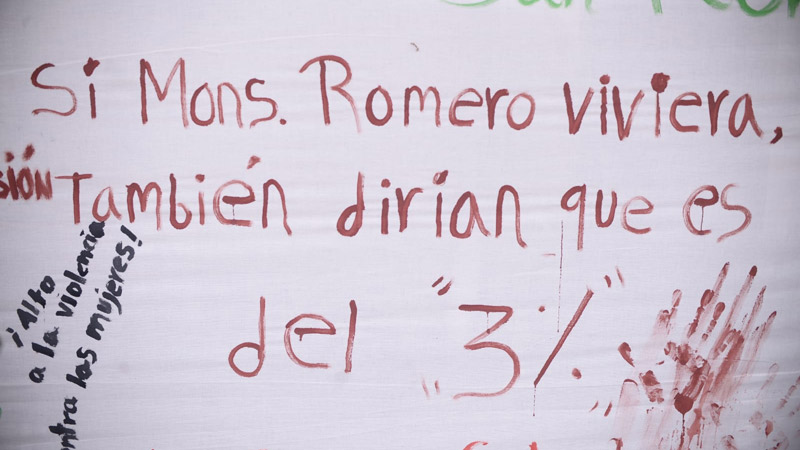 Si Mons. Romero viviera,
También dirían que es
del "3%"
SIÓN
¡Alto
a la violencia
contra las mujeres!